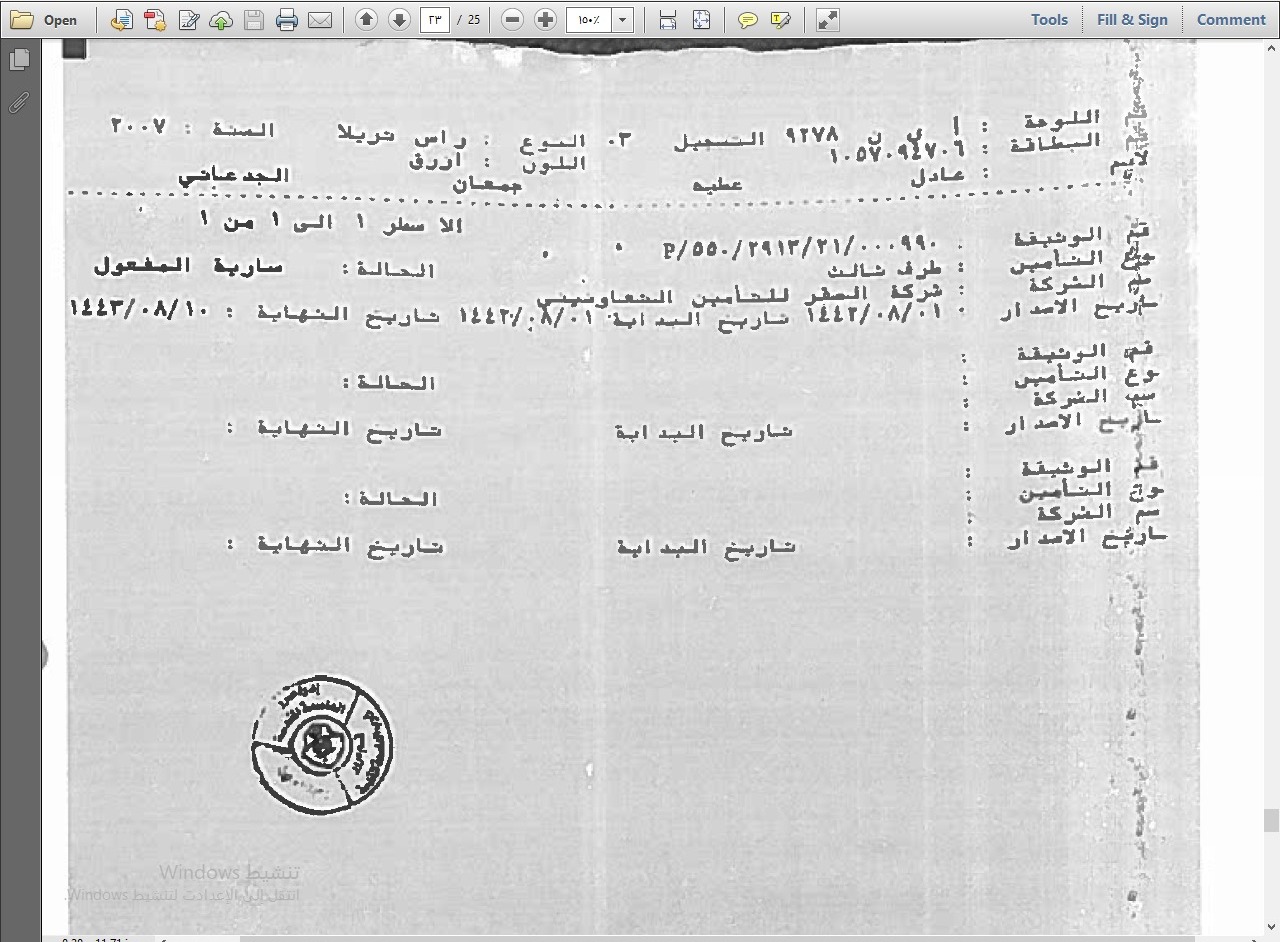 Open
٢٣ / 25
١٥٠٪
Tools
Fill & Sign
Comment
اللوحة : أ ى ن ٩٢٧٨ التسجيل ٠٣ النوع : راس تريلا السنة : ٢٠٠٧
البطاقة : ١٠٥٧٠٩٤٧٠٦ اللون : ازرق
: عادل عطيه جمعان الجدعاني
الاسطر ١ الى ١ من ١
الوثيقة P/٥٥٠/٢٩١٣/٢١/٠٠٠٩٩٠
التأمين : طرف ثالث الحالة : سارية المفعول
الشركة : شركة الصقر للتأمين التعاوني
تاريخ الاصدار : ١٤٤٢/٠٨/٠١ تاريخ البداية ١٤٤٢/٠٨/٠١ تاريخ النهاية : ١٤٤٣/٠٨/١٠
الوثيقة :
وع التأمين : الحالة :
الشركة :
اريخ الاصدار : تاريخ البداية تاريخ النهاية :
الوثيقة :
التأمين : الحالة :
سم الشركة :
اريخ الاصدار : تاريخ البداية تاريخ النهاية :
تنشيط Windows
انتقل إلى الإعدادات لتنشيط Windows.